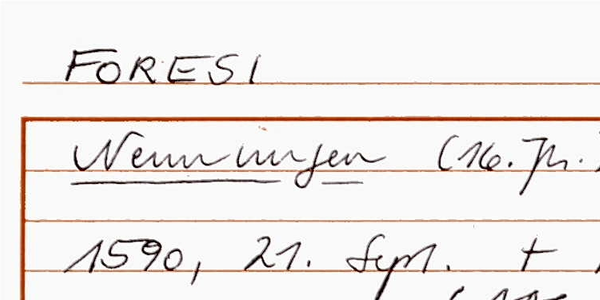 FORESI
Nennungen (16. Jh.)
1590, 21. Sept. +